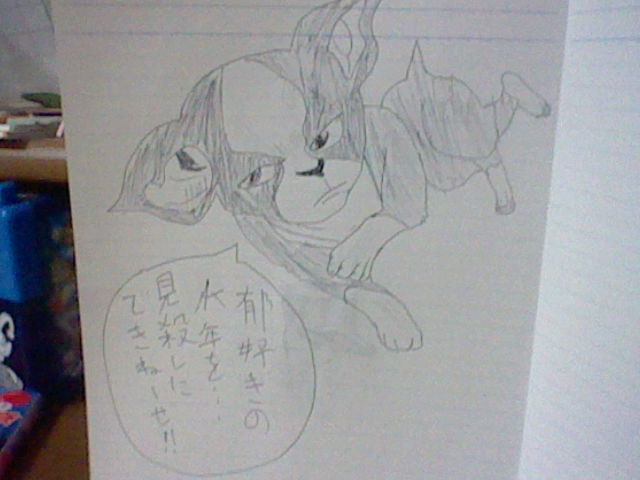 郁好きの
水年を・・・
見殺しに
できねーぜ!!